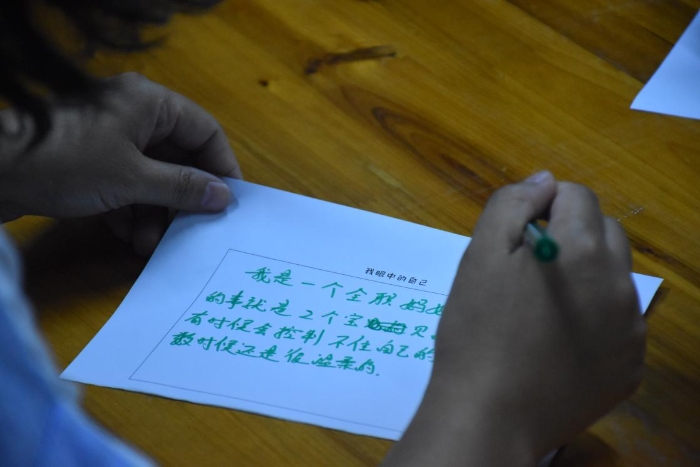 我眼中的自己
我是一个全职妈妈
的事就是2个宝贝
有时候会控制不住自己的
数时候还是很温柔的.